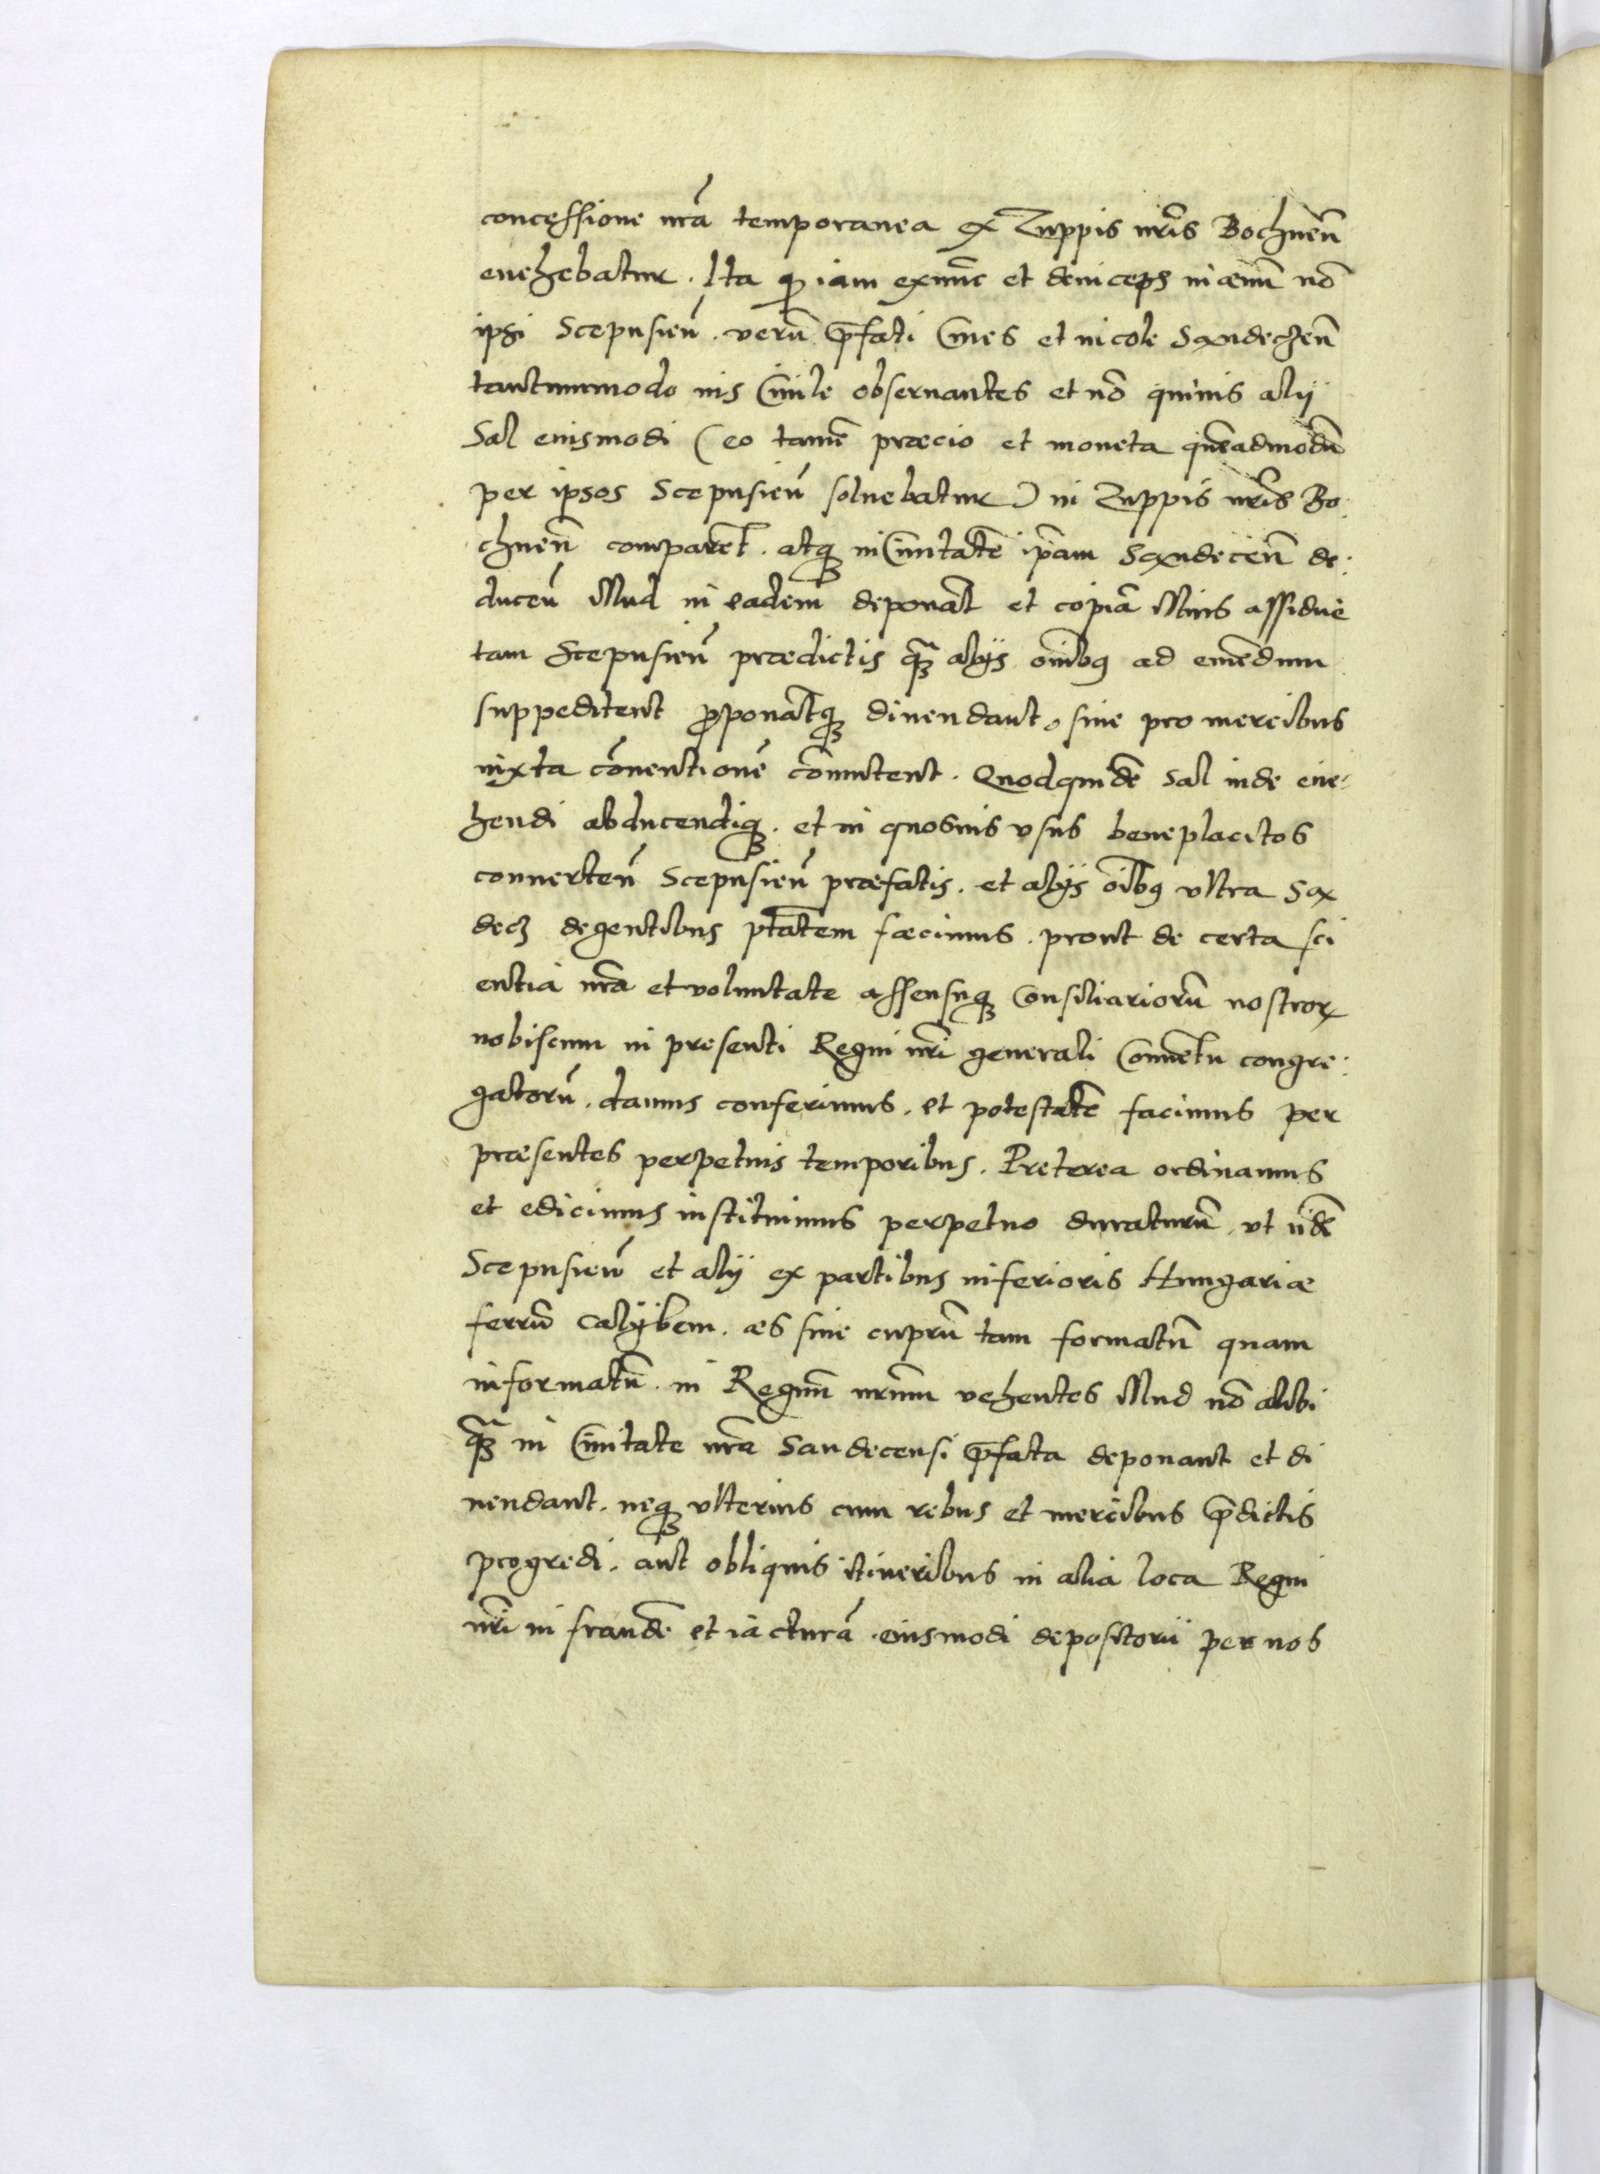 concessione nrã temporanea ex Zuppis nris Bochneñ
euehebatur. Ita q iam exnũc et deinceps in æuũ nõ
ipsi Scepusieñ. verũ p̃fati Ciues et incole Sandecheñ
tantummodo ius Ciuile obseruantes et nõ quiuis alij
Sal eiusmodi (eo tamẽ præcio et moneta quẽadmodũ
per ipsos Scepusieñ soluebatur) in Zuppis nris Bo:
chneñ comparẽt. atq in Ciuitatẽ ip̃am Sandecieñ de:
duceñ illud in eadem deponãt et copiã illius assidue
tam Scepusieñ prædictis q̃ alijs om̃ibq ad emẽdum
suppeditent p̱ponãtq diuendant, siue pro mercibus
iuxta cõuentionẽ cõmutent. Quodquidẽ Sal inde eue:
hendi abducendiq. et in quosuis vsus beneplacitos
conuerteñ Scepusieñ præfatis. et alijs oĩbq vltra San
decz degentibus ptãtem fæcimus. prout de certa sci
entia nrã et voluntate assensuq Consiliariorũ nostror
nobiscum in presenti Regni nri generali Conuẽtu congre:
gatorũ. damus conferimus. et potestatẽ facimus per
præsentes perpetuis temporibus. Preterea ordinamus
et edicimus instituimus perpetuo duraturũ. vt ijdẽ
Scepusieñ et alij ex partibus inferioris Hungariæ
ferrũ Calijbem. æs siue cuprũ tam formatũ quam
informatũ. in Regnũ nrũm vehentes illud nõ alibi
q̃ in Ciuitate nrã Sandecensi p̃fata deponant et di
uendant. neq vlterius cum rebus et mercibus p̃dictis
progredi. aut obliquis itineribus in alia loca Regni
nri in fraudẽ et iacturã eiusmodi depositorij per nos